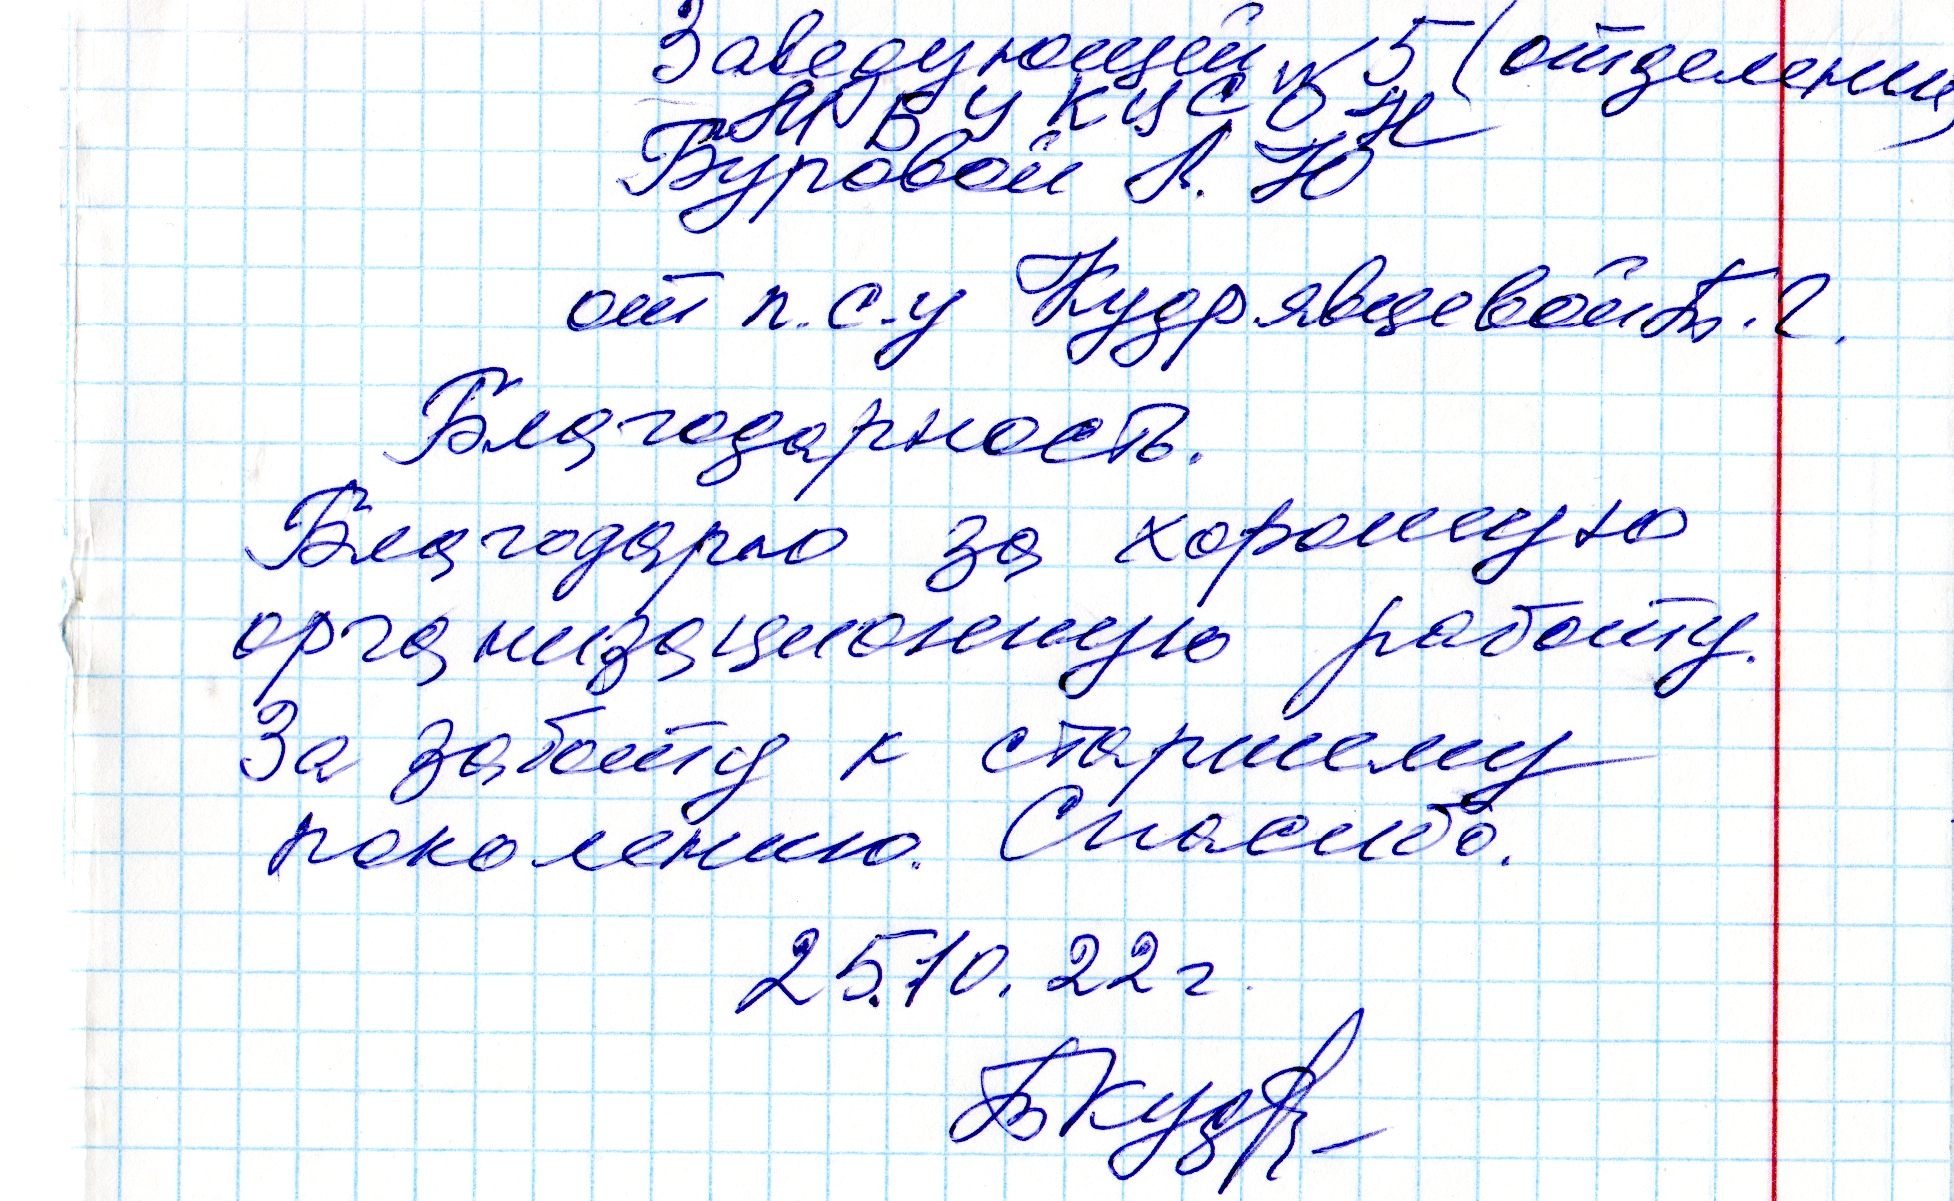 Заведующей № 5 (отделения)
МБУ КЦСОН
Буровой Л. Ю
от п.с.у Кудрявцевой Т. Г.
Благодарность.
Благодарю за хорошую
организационную работу.
За заботу к старшему
поколению. Спасибо.
25.10.22г.